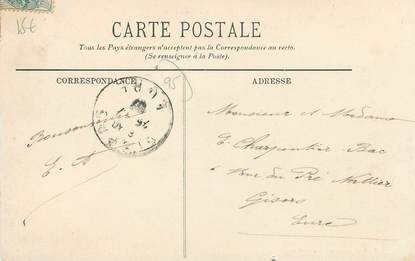 15€
CARTE POSTALE
Tous les Pays étrangers n'acceptent pas la Correspondance au recto.
(Se renseigner à la Poste).
CORRESPONDANCE
ADRESSE
95
Monsieur et Madame
E. Charpentier Bac
6 Rue du Pré Nattier
Gisors
Eure